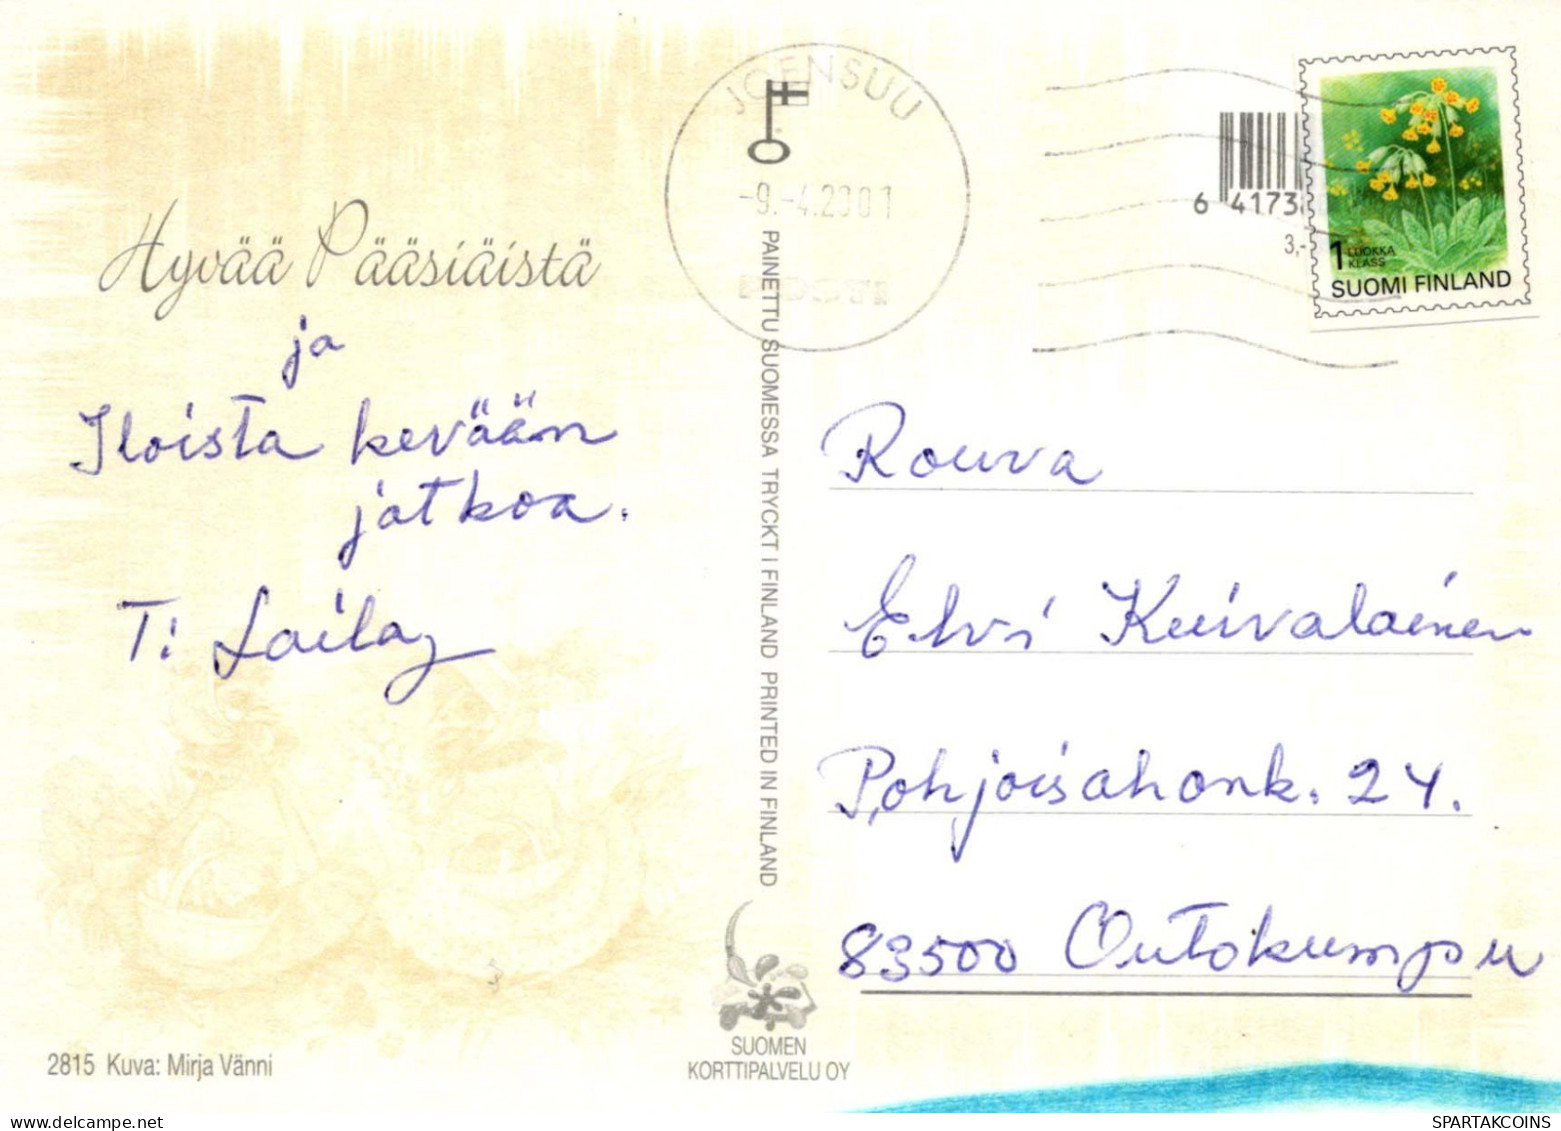 JOENSUU
-9.-4.2001
POSTI
6 41738
3,-
1 LUOKKA
KLASS
SUOMI FINLAND
Hyvää Pääsiäistä
ja
Iloista kevään
jatkoa.
T: Laila
PAINETTU SUOMESSA TRYCKT I FINLAND PRINTED IN FINLAND
Rouva
Elvi Kuivalainen
Pohjoisahonk. 24.
83500 Outokumpu
2815 Kuva: Mirja Vänni
SUOMEN
KORTTIPALVELU OY
SPARTAKCOINS